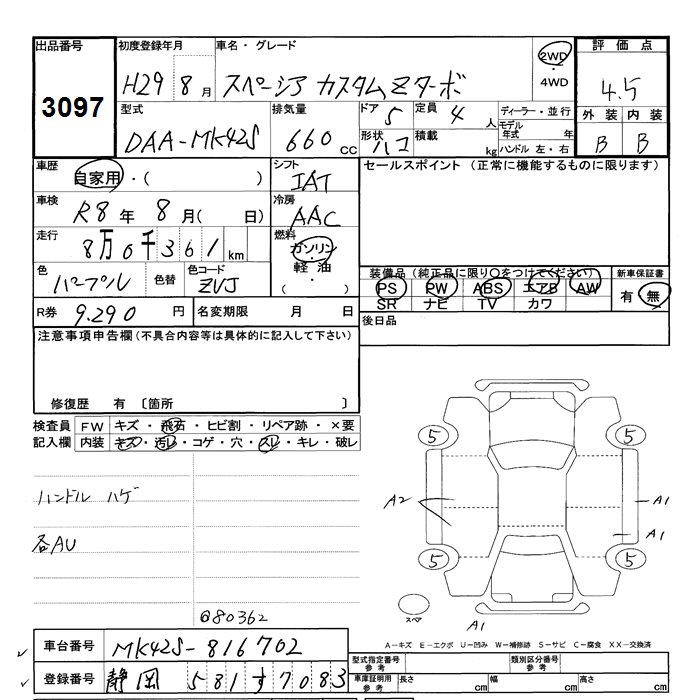 出品番号 初度登録年月 車名・グレード 2WD ・ 4WD 評価点
3097 H29 8月 スペーシア カスタムZターボ 4.5
型式 排気量 ドア 5 定員 4人 ディーラー・並行 外装 内装
DAA-MK42S 660cc 形状 ハコ 積載 kg モデル年式 年 ハンドル 左・右 B B
車歴 自家用・( ) シフト IAT セールスポイント (正常に機能するものに限ります)
車検 R8年 8月( 日) 冷房 AAC
走行 8万0千361km 燃料 ガソリン 軽油 ( ・ )
色 パープル 色替 色コード ZVJ 装備品 (純正品に限り○をつけてください) 新車保証書
PS PW ABS エアB AW 有 無
SR ナビ TV カワ
R券 9.290円 名変期限 月 日 後日品
注意事項申告欄(不具合内容等は具体的に記入して下さい)
修復歴 有 〔箇所 〕
検査員 FW キズ・飛石・ヒビ割・リペア跡・×要
記入欄 内装 キズ・汚レ・コゲ・穴・スレ・キレ・破レ
5 5
ハンドル ハゲ A2 A1
各AU A1
5 5
@80362 スペア A1
A-キズ E-エクボ U-凹み W-補修跡 S-サビ C-腐食 XX-交換済
車台番号 MK42S-816702 型式指定番号 参考 類別区分番号 参考
登録番号 静岡 581す7083 車庫証明用 参考 長さ cm 幅 cm 高さ cm